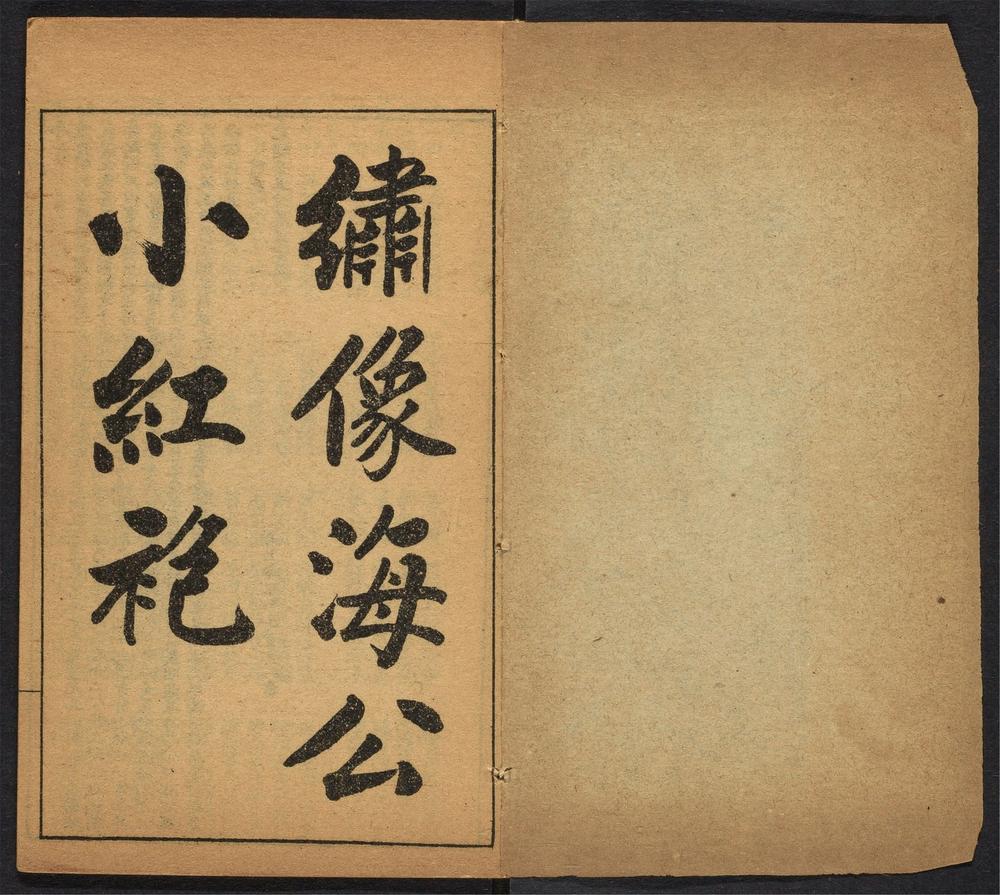 繡像海公
小紅袍